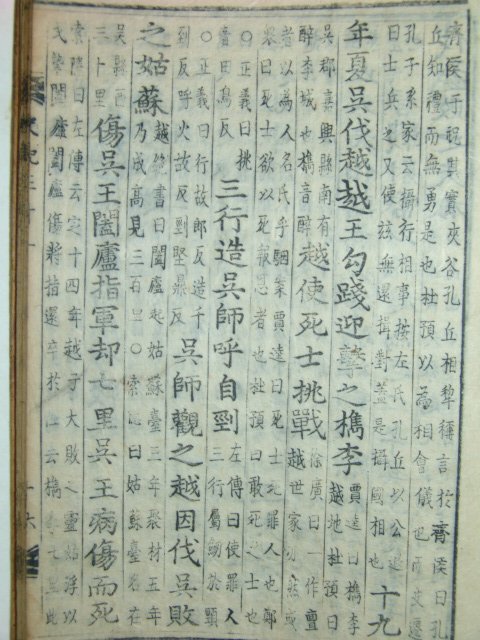 齊侯于祝其實夾谷孔丘相犂稱言於齊侯曰孔
丘知禮而無勇是也杜預以為相會儀也而史遷
孔子系家云攝行相事按左氏孔丘以公退
曰士兵之又使兹無還揖對蓋是攝國相也
十九
年夏吳伐越越王勾踐迎擊之檇李
賈逵曰檇李
越地杜預曰
吳郡嘉興縣南有
醉李城也檇音醉
越使死士挑戰
徐廣曰一作亶
越世家亦然或
者以為人名氏乎駰案賈逵曰死士死罪人也鄭
衆曰死士欲以死報恩者也杜預曰敢死之士也
○正義曰挑
音田鳥反
三行造吳師呼自剄
左傳曰使罪人
三行屬劒於頸
○正義曰行故郎反造千
到反呼火故反剄堅鼎反
吳師觀之越因伐吳敗
之姑蘇
越絶書曰闔廬起姑蘇臺三年聚材五年
乃成高見三百里○索隱曰姑蘇臺名在
吳縣西
三十里
傷吳王闔廬指軍却七里吳王病傷而死
索隱曰左傳云定十四年越子大敗之靈姑浮以
戈擊闔廬闔廬傷將指還卒於 云檇李七里此
史記三十一
十六